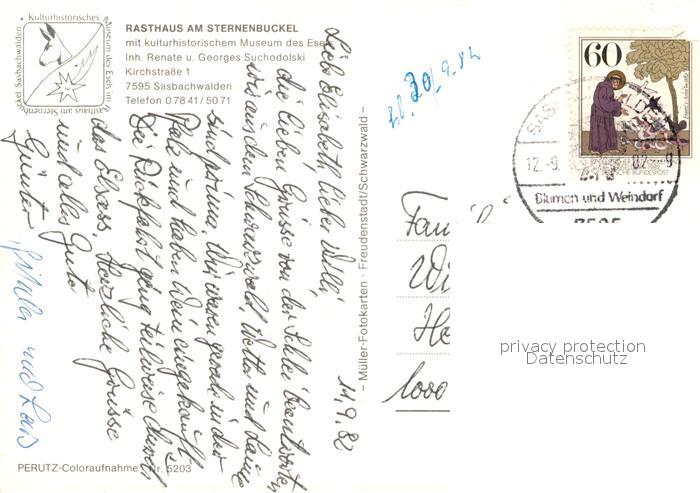 Kulturhistorisches
Museum des Esels im
Rasthaus am Sternenbuckel Sasbachwalden
RASTHAUS AM STERNENBUCKEL
mit kulturhistorischem Museum des Esels
Inh. Renate u. Georges Suchodolski
Kirchstraße 1
7595 Sasbachwalden
Telefon 0 78 41 / 50 71
11.9.82
Liebe Elisabeth, lieber Willi,
die lieben Grüsse von der Schlei beantworten
wir aus dem Schwarzwald, Wetter und Laune
sind prima. Wir waren gerade in der
Pfalz und haben Wein eingekauft.
Die Rückfahrt ging teilweise durch
das Elsass. Herzliche Grüsse
und alles Gute
Günter
und
PERUTZ-Coloraufnahme Nr. 5203
– Müller-Fotokarten · Freudenstadt/Schwarzwald –
30/9.82
60
DEUTSCHE BUNDESPOST
12.-9.
Blumen und Weindorf
7595
Fam
Wi
He
1000
privacy protection
Datenschutz